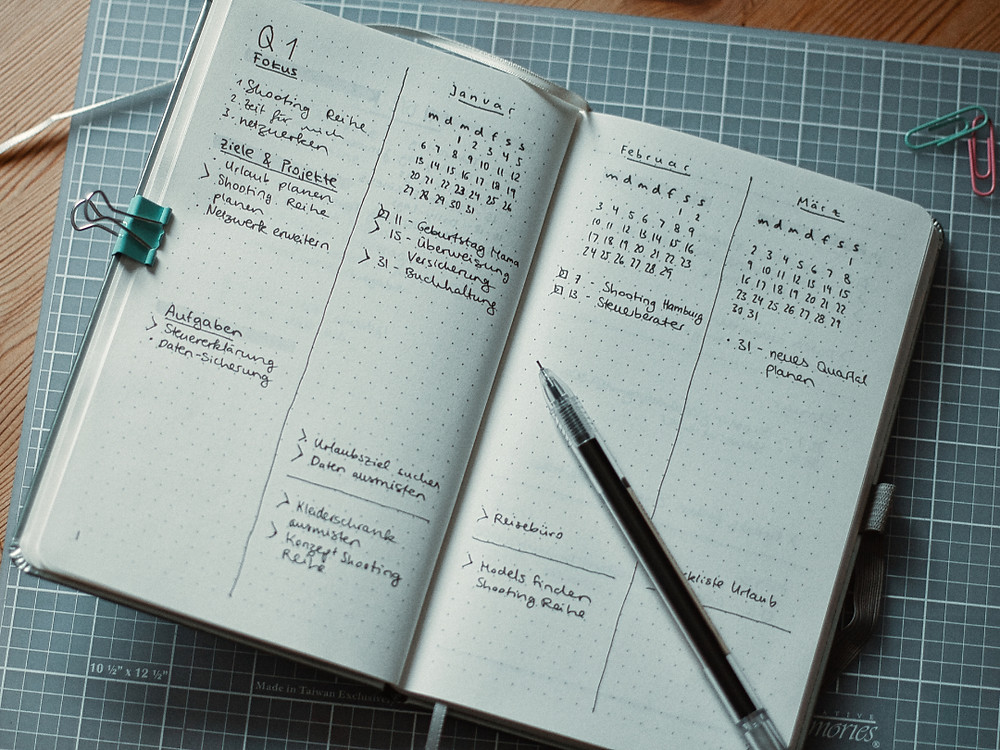 Q1
Fokus
1. Shooting Reihe
2. Zeit für mich
3. netzwerken
Ziele & Projekte
> Urlaub planen
· Shooting Reihe
planen
· Netzwerk erweitern
Aufgaben
> Steuererklärung
· Daten-Sicherung
1
Januar
m d m d f s s
1 2 3 4 5
6 7 8 9 10 11 12
13 14 15 16 17 18 19
20 21 22 23 24 25 26
27 28 29 30 31
11 - Geburtstag Mama
> 15 - Überweisung
Versicherung
> 31 - Buchhaltung
> Urlaubsziel suchen
> Daten ausmisten
> Kleiderschrank
ausmisten
> Konzept Shooting
Reihe
Februar
m d m d f s s
1 2
3 4 5 6 7 8 9
10 11 12 13 14 15 16
17 18 19 20 21 22 23
24 25 26 27 28 29
7 - Shooting Hamburg
13 - Steuerberater
> Reisebüro
> Models finden
Shooting Reihe
März
m d m d f s s
1
2 3 4 5 6 7 8
9 10 11 12 13 14 15
16 17 18 19 20 21 22
23 24 25 26 27 28 29
30 31
· 31 - neues Quartal
planen
ckliste Urlaub
10 ½" x 12 ½"
Made in Taiwan Exclusive